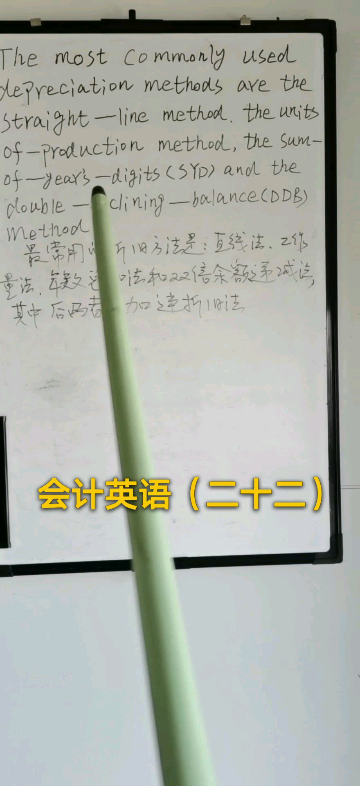 The most commonly used
depreciation methods are the
straight—line method, the units
of—production method, the sum—
of—years—digits (SYD) and the
double— clining—balance(DDB)
method
最常用 折旧方法是:直线法、工作
量法、年数 法和双倍余额递减法,
其中后两者 加速折旧法
会计英语（二十二）